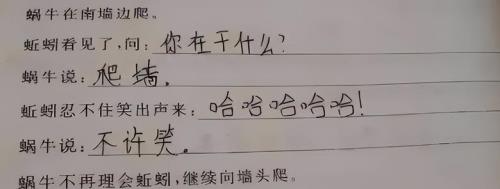 蜗牛在南墙边爬。
蚯蚓看见了,问:你在干什么?
蜗牛说:爬墙.
蚯蚓忍不住笑出声来:哈哈哈哈哈!
蜗牛说:不许笑.
蜗牛不再理会蚯蚓,继续向墙头爬。